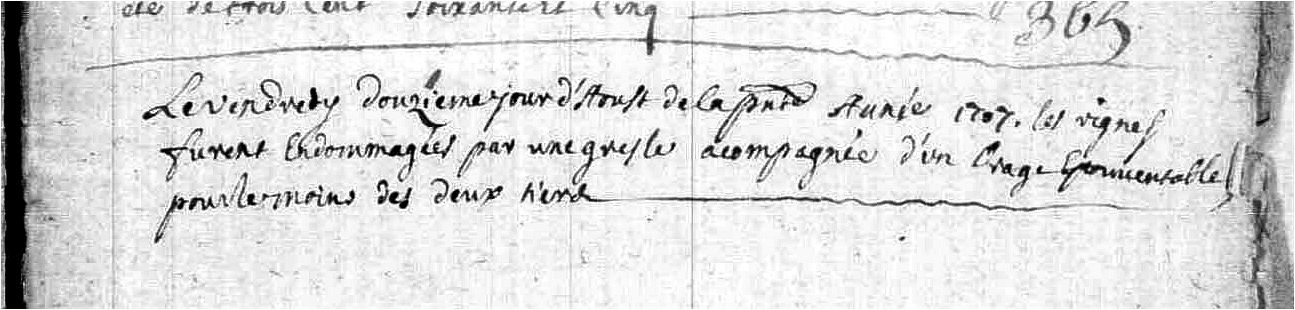 été de trois Cent Soixante et Cinq 365
Le vendredy douziemejour d'Aoust de la pnte Année 1707. les vignes
furent Endommagées par une gresle acompagnée d'un Orage Epouventable
pour le moins des deux tiers